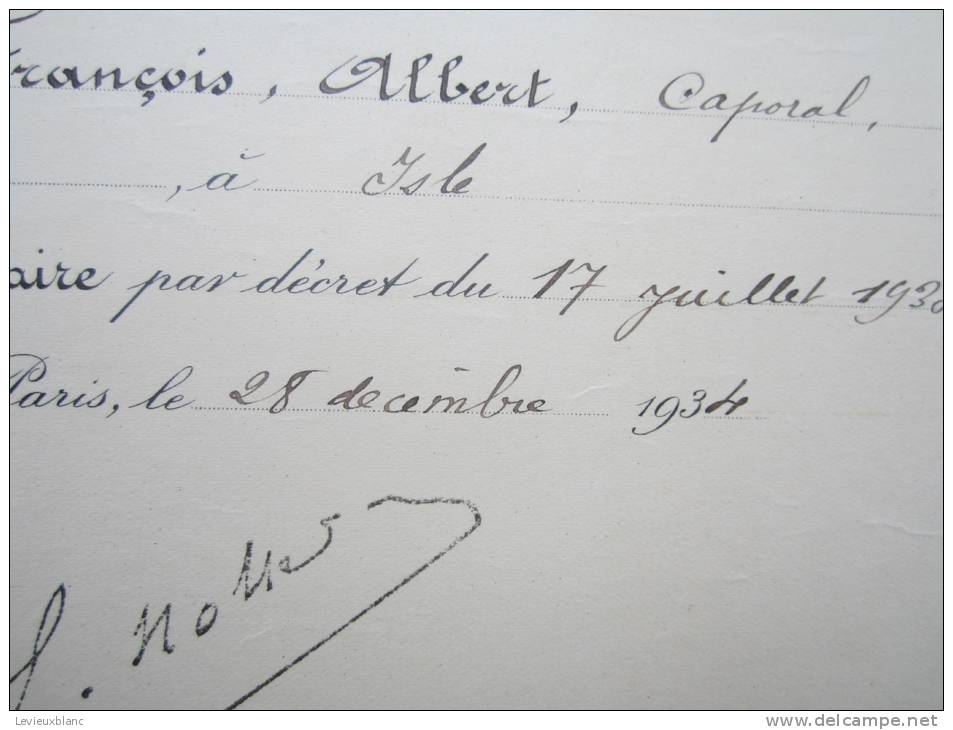 François, Albert, Caporal,
, à Isle
aire par décret du 17 juillet 193
Paris, le 28 décembre 1934
Levieuxblanc
www.delcampe.net